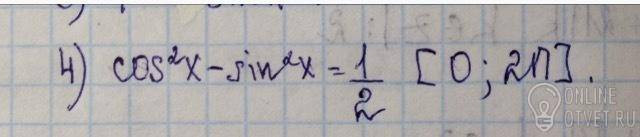 4) cos²x - sin²x = 1/2 [0; 2П].
ONLINE
OTVET.RU